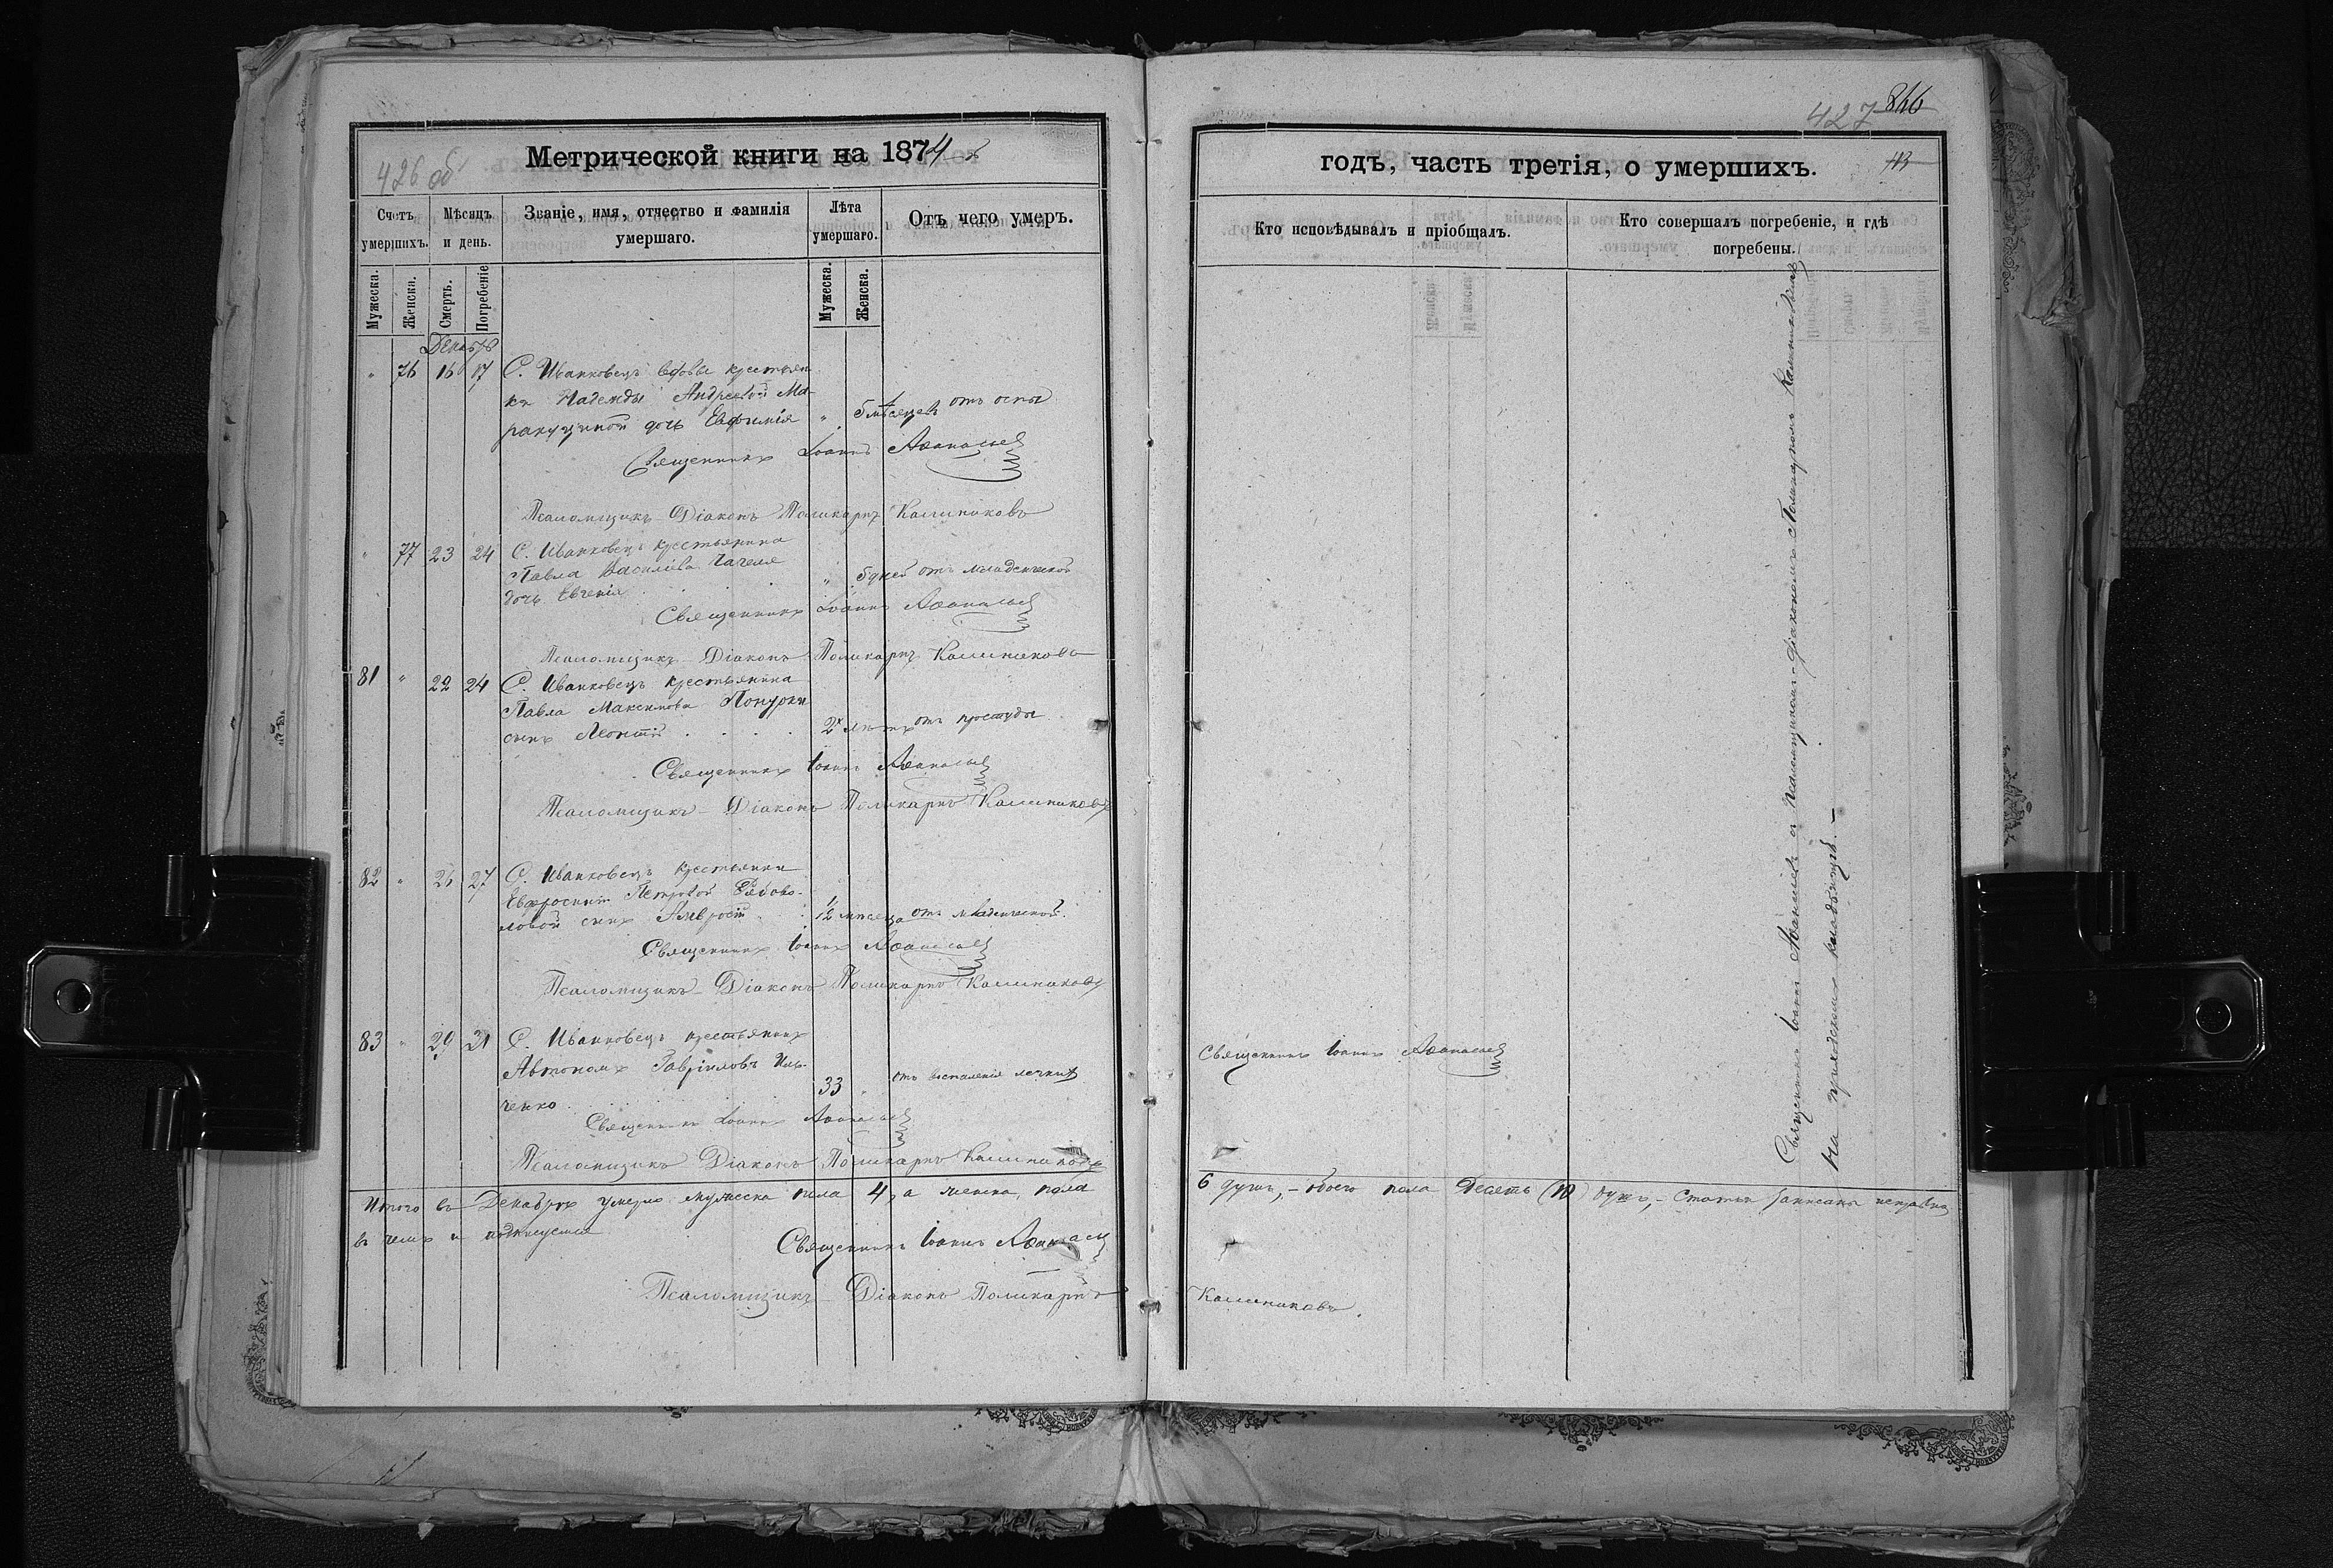 426 об
Метрической книги на 1874
Счетъ умершихъ.
Мѣсяцъ и день.
Званіе, имя, отчество и фамилія умершаго.
Лѣта умершаго.
Отъ чего умеръ.
Мужеска.
Женска.
Смерть.
Погребеніе
Мужеска.
Женска.
Декабрь
" 76 16 17 С. Иванковецъ вдовы крестьян-
ки Надежды Андреевой Ма-
ракуциной дочь Евфимія " 5 мѣсяцевъ отъ оспы
Священникъ Іоаннъ Аѳанасьев
Псаломщикъ-Діаконъ Поликарпъ Калиниковъ
" 77 23 24 С. Иванковецъ крестьянина
Павла Василіева
дочь Евгенія " 5 дней отъ младенческой
Священникъ Іоаннъ Аѳанасьев
Псаломщикъ-Діаконъ Поликарпъ Калиниковъ
81 " 22 24 С. Иванковецъ крестьянина
Павла Максимова
сынъ Леонтій 2 лѣтъ отъ простуды
Священникъ Іоаннъ Аѳанасьев
Псаломщикъ-Діаконъ Поликарпъ Калиниковъ
82 " 26 27 С. Иванковецъ крестьянки
Евфросиніи Петровой Рябово-
ловой сынъ Амвросій 1/2 мѣсяца отъ младенческой.
Священникъ Іоаннъ Аѳанасьев
Псаломщикъ-Діаконъ Поликарпъ Калиниковъ
83 " 29 31 С. Иванковецъ крестьянинъ
Автономъ Гавріиловъ Иль-
ченко 33 " отъ воспаленія легкихъ
Священникъ Іоаннъ Аѳанасьев
Псаломщикъ Діаконъ Поликарпъ Калиниковъ
Итого въ Декабрѣ умерло мужеска пола 4, а женска пола
въ чемъ и подписуемся
Священникъ Іоаннъ Аѳанасьев
Псаломщикъ-Діаконъ Поликарпъ
427 846
годъ, часть третія, о умершихъ.
Кто исповѣдывалъ и пріобщалъ.
Кто совершалъ погребеніе, и гдѣ погребены.
Священникъ Іоаннъ Аѳанасьев
Священникъ Іоаннъ Аѳанасьевъ съ псаломщикомъ-Діакономъ Поликарпомъ
на приходскомъ кладбищѣ.—
6 душъ, - обоего пола Десять (10) душъ, - Статьи записаны исправно
Калиниковъ.